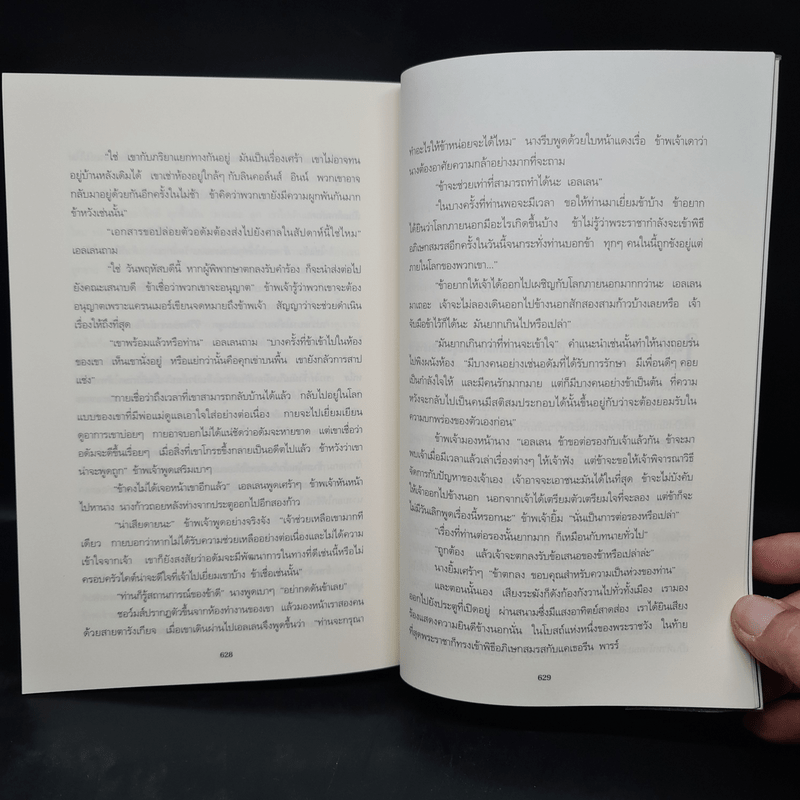 "ใช่ เขากับภริยาแยกทางกันอยู่ มันเป็นเรื่องเศร้า เขาไม่อาจทน
อยู่บ้านหลังเดิมได้ เขาเช่าห้องอยู่ใกล้ๆ กับลินคอล์นส์ อินน์ พวกเขาอาจ
กลับมาอยู่ด้วยกันอีกครั้งในไม่ช้า ข้าคิดว่าพวกเขายังมีความผูกพันกันมาก
ข้าหวังเช่นนั้น"
"เอกสารขอปล่อยตัวอดัมต้องส่งไปยังศาลในสัปดาห์นี้ใช่ไหม"
เอลเลนถาม
"ใช่ วันพฤหัสบดีนี้ หากผู้พิพากษาตกลงรับคำร้อง ก็จะนำส่งต่อไป
ยังคณะเสนาบดี ข้าเชื่อว่าพวกเขาจะอนุญาต" ข้าพเจ้ารู้ว่าพวกเขาจะต้อง
อนุญาตเพราะแครนเมอร์เขียนจดหมายถึงข้าพเจ้า สัญญาว่าจะช่วยดำเนิน
เรื่องให้ถึงที่สุด
"เขาพร้อมแล้วหรือท่าน" เอลเลนถาม "บางครั้งที่ข้าเข้าไปในห้อง
ของเขา เห็นเขานั่งอยู่ หรือแย่กว่านั้นคือคุกเข่าบนพื้น เขายังกลัวการสาป
แช่ง"
"กายเชื่อว่าถึงเวลาที่เขาสามารถกลับบ้านได้แล้ว กลับไปอยู่ในโลก
แบบของเขาที่มีพ่อแม่ดูแลเอาใจใส่อย่างต่อเนื่อง กายจะไปเยี่ยมเยียน
ดูอาการเขาบ่อยๆ กายอาจบอกไม่ได้แน่ชัดว่าอดัมจะหายขาด แต่เขาเชื่อว่า
อดัมจะดีขึ้นเรื่อยๆ เมื่อสิ่งที่เขาโกรธขึ้งกลายเป็นอดีตไปแล้ว ข้าหวังว่าเขา
น่าจะพูดถูก" ข้าพเจ้าพูดเสริมเบาๆ
"ข้าคงไม่ได้เจอหน้าเขาอีกแล้ว" เอลเลนพูดเศร้าๆ ข้าพเจ้าหันหน้า
ไปหานาง นางก้าวถอยหลังห่างจากประตูออกไปอีกสองก้าว
"น่าเสียดายนะ" ข้าพเจ้าพูดอย่างจริงจัง "เจ้าช่วยเหลือเขามากที
เดียว กายบอกว่าหากไม่ได้รับความช่วยเหลืออย่างต่อเนื่องและไม่ได้ความ
เข้าใจจากเจ้า เขาก็ยังสงสัยว่าอดัมจะมีพัฒนาการในทางที่ดีเช่นนี้หรือไม่
ครอบครัวไคต์น่าจะดีใจที่เจ้าไปเยี่ยมเขาบ้าง ข้าเชื่อเช่นนั้น"
"ท่านก็รู้สถานการณ์ของข้าดี" นางพูดเบาๆ "อย่ากดดันข้าเลย"
ชอว์มส์ปรากฏตัวขึ้นจากห้องทำงานของเขา แล้วมองหน้าเราสองคน
ด้วยสายตารังเกียจ เมื่อเขาเดินผ่านไปเอลเลนจึงพูดขึ้นว่า "ท่านจะกรุณา
628
ทำอะไรให้ข้าหน่อยจะได้ไหม" นางรีบพูดด้วยใบหน้าแดงเรื่อ ข้าพเจ้าเดาว่า
นางต้องอาศัยความกล้าอย่างมากที่จะถาม
"ข้าจะช่วยเท่าที่สามารถทำได้นะ เอลเลน"
"ในบางครั้งที่ท่านพอจะมีเวลา ขอให้ท่านมาเยี่ยมข้าบ้าง ข้าอยาก
ได้ยินว่าโลกภายนอกมีอะไรเกิดขึ้นบ้าง ข้าไม่รู้ว่าพระราชากำลังจะเข้าพิธี
อภิเษกสมรสอีกครั้งในวันนี้จนกระทั่งท่านบอกข้า ทุกๆ คนในนี้ถูกขังอยู่แต่
ภายในโลกของพวกเขา..."
"ข้าอยากให้เจ้าได้ออกไปเผชิญกับโลกภายนอกมากกว่านะ เอลเลน
มาเถอะ เจ้าจะไม่ลองเดินออกไปข้างนอกสักสองสามก้าวบ้างเลยหรือ เจ้า
จับมือข้าไว้ก็ได้นะ มันยากเกินไปหรือเปล่า"
"มันยากเกินกว่าที่ท่านจะเข้าใจ" คำแนะนำเช่นนั้นทำให้นางถอยร่น
ไปพิงผนังห้อง "มีบางคนอย่างเช่นอดัมที่ได้รับการรักษา มีเพื่อนดีๆ คอย
เป็นกำลังใจให้ และมีคนรักมากมาย แต่ก็มีบางคนอย่างข้าเป็นต้น ที่ความ
หวังจะกลับไปเป็นคนมีสติสมประกอบได้นั้นขึ้นอยู่กับว่าจะต้องยอมรับใน
ความบกพร่องของตัวเองก่อน"
ข้าพเจ้ามองหน้านาง "เอลเลน ข้าขอต่อรองกับเจ้าแล้วกัน ข้าจะมา
พบเจ้าเมื่อมีเวลาแล้วเล่าเรื่องต่างๆ ให้เจ้าฟัง แต่ข้าจะขอให้เจ้าพิจารณาวิธี
จัดการกับปัญหาของเจ้าเอง เจ้าอาจจะเอาชนะมันได้ในที่สุด ข้าจะไม่บังคับ
ให้เจ้าออกไปข้างนอก นอกจากเจ้าได้เตรียมตัวเตรียมใจที่จะลอง แต่ข้าก็จะ
ไม่วันเลิกพูดเรื่องนี้หรอกนะ" ข้าพเจ้ายิ้ม "นั่นเป็นการต่อรองหรือเปล่า"
"เรื่องที่ท่านต่อรองนั้นยากมาก ก็เหมือนกับทนายทั่วไป"
"ถูกต้อง แล้วเจ้าจะตกลงรับข้อเสนอของข้าหรือเปล่าล่ะ"
นางยิ้มเศร้าๆ "ข้าตกลง ขอบคุณสำหรับความเป็นห่วงของท่าน"
และตอนนั้นเอง เสียงระฆังก็ดังก้องกังวานไปทั่วทั้งเมือง เรามอง
ออกไปยังประตูที่เปิดอยู่ ผ่านสนามซึ่งมีแสงอาทิตย์สาดส่อง เราได้ยินเสียง
ร้องแสดงความยินดีข้างนอกนั่น ในโบสถ์แห่งหนึ่งของพระราชวัง ในท้าย
ที่สุดพระราชาก็ทรงเข้าพิธีอภิเษกสมรสกับแคเธอรีน พารร์
629